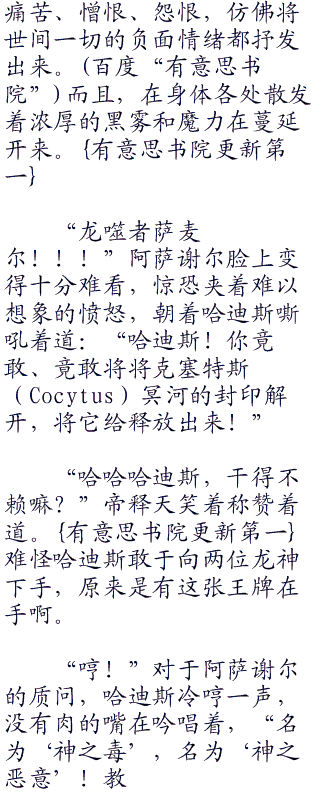 痛苦、憎恨、怨恨，仿佛将
世间一切的负面情绪都抒发
出来。(百度“有意思书
院”)而且，在身体各处散发
着浓厚的黑雾和魔力在蔓延
开来。{有意思书院更新第
一}
“龙噬者萨麦
尔！！！”阿萨谢尔脸上变
得十分难看，惊恐夹着难以
想象的愤怒，朝着哈迪斯嘶
吼着道：“哈迪斯！你竟
敢、竟敢将将克塞特斯
（Cocytus）冥河的封印解
开，将它给释放出来！”
“哈哈哈迪斯，干得不
赖嘛？”帝释天笑着称赞着
道。{有意思书院更新第一}
难怪哈迪斯敢于向两位龙神
下手，原来是有这张王牌在
手啊。
“哼！”对于阿萨谢尔
的质问，哈迪斯冷哼一声，
没有肉的嘴在吟唱着，“名
为‘神之毒’，名为‘神之
恶意’！教